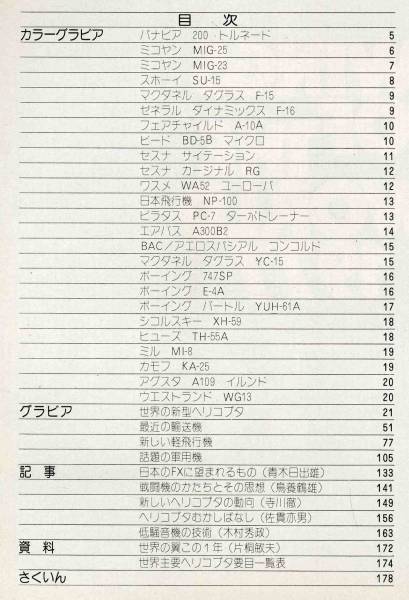 目 次
カラーグラビア パナビア 200 トルネード 5
ミコヤン MIG-25 6
ミコヤン MIG-23 7
スホーイ SU-15 8
マクダネル ダグラス F-15 9
ゼネラル ダイナミックス F-16 9
フェアチャイルド A-10A 10
ビード BD-5B マイクロ 10
セスナ サイテーション 11
セスナ カージナル RG 12
ワスメ WA52 ユーローパ 12
日本飛行機 NP-100 13
ピラタス PC-7 ターボトレーナー 13
エアバス A300B2 14
BAC/アエロスパシアル コンコルド 15
マクダネル ダグラス YC-15 15
ボーイング 747SP 16
ボーイング E-4A 16
ボーイング バートル YUH-61A 17
シコルスキー XH-59 18
ヒューズ TH-55A 18
ミル MI-8 19
カモフ KA-25 19
アグスタ A109 イルンド 20
ウエストランド WG13 20
グラビア 世界の新型ヘリコプタ 21
最近の輸送機 51
新しい軽飛行機 77
話題の軍用機 105
記 事 日本のFXに望まれるもの (青木日出雄) 133
戦闘機のかたちとその思想 (鳥養鶴雄) 141
新しいヘリコプタの動向 (寺川徹) 149
ヘリコプタむかしばなし (佐貫亦男) 156
低騒音機の技術 (木村秀政) 163
資 料 世界の翼この1年 (片桐敏夫) 172
世界主要ヘリコプタ要目一覧表 174
さくいん 178